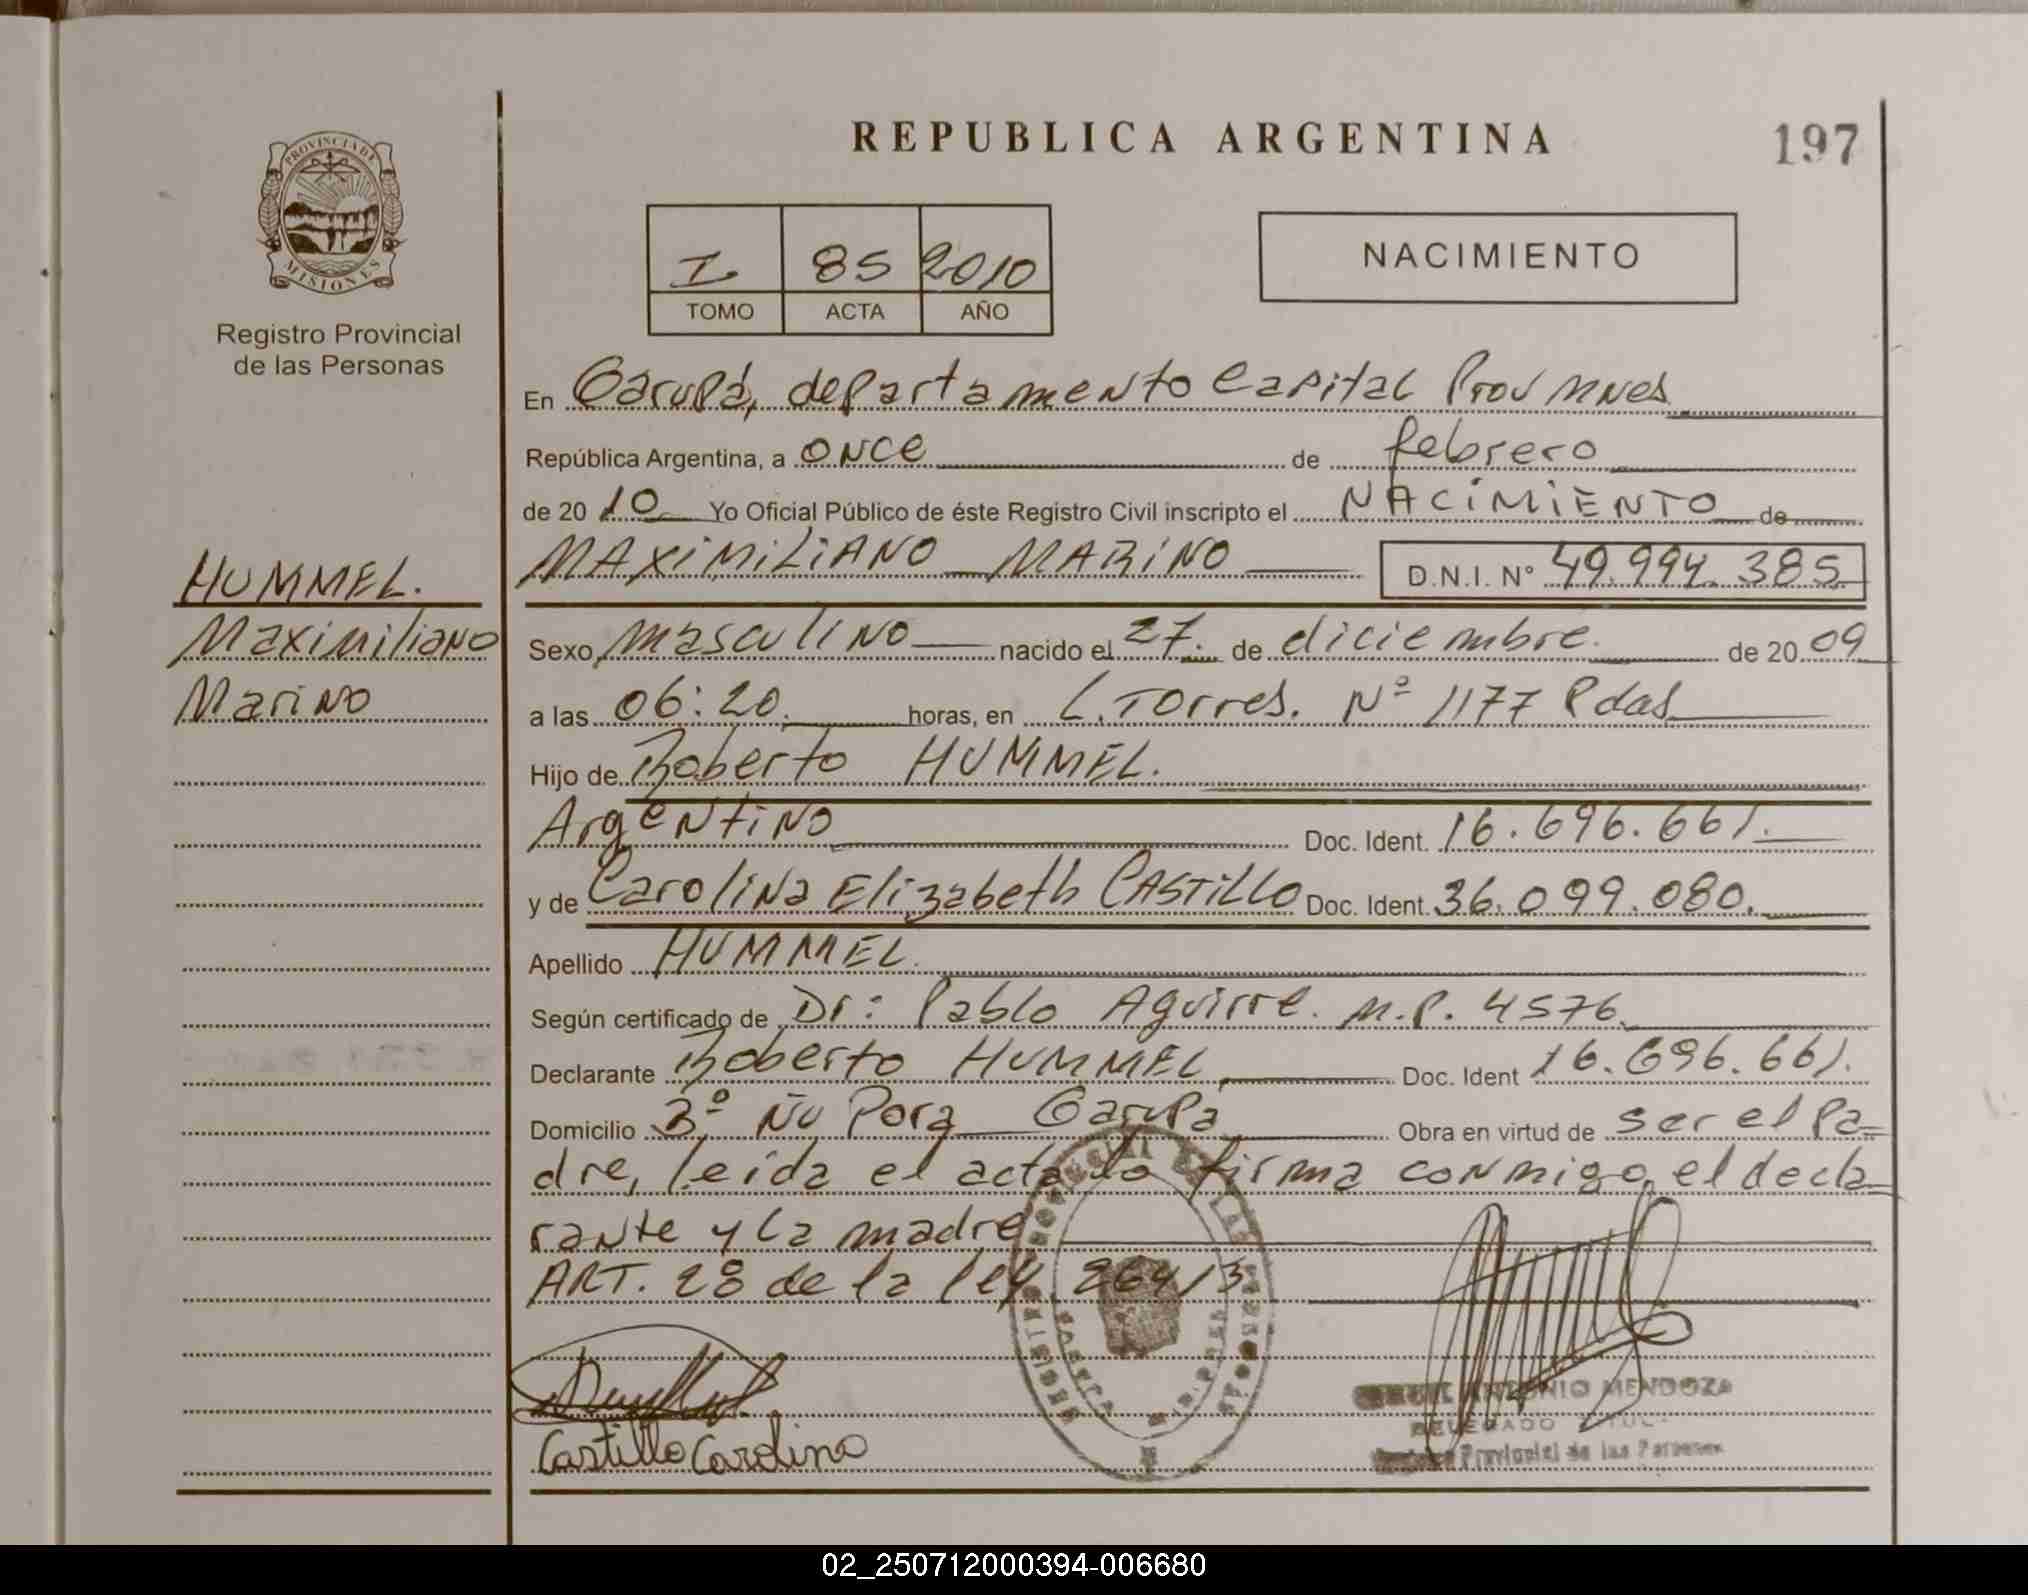 REPUBLICA ARGENTINA
197
PROVINCIA DE
MISIONES
Registro Provincial
de las Personas
I 85 2010
TOMO ACTA AÑO
NACIMIENTO
En Garupá, departamento Capital Prov Mnes
República Argentina, a once de febrero
de 20 10 Yo Oficial Público de éste Registro Civil inscripto el NACIMIENTO de
MAXIMILIANO MARINO D.N.I. N° 49.994.385
HUMMEL.
Maximiliano
Marino
Sexo masculino nacido el 27. de diciembre. de 20 09
a las 06:20. horas, en L. Torres. Nº 1177 Pdas
Hijo de Roberto HUMMEL.
Argentino Doc. Ident. 16.696.661.
y de Carolina Elizabeth CASTILLO Doc. Ident. 36.099.080.
Apellido HUMMEL.
Según certificado de Dr: Pablo Aguirre. M.P. 4576.
Declarante Roberto HUMMEL Doc. Ident 16.696.661.
Domicilio Bº Ñu Pora Garupa Obra en virtud de ser el pa-
dre, leída el acta la firma conmigo el decla-
rante y la madre
ART. 28 de la ley. 26413
Castillo Carolina
ANTONIO MENDOZA
DELEGADO TITUL
Provincial de las Personas
02_250712000394-006680